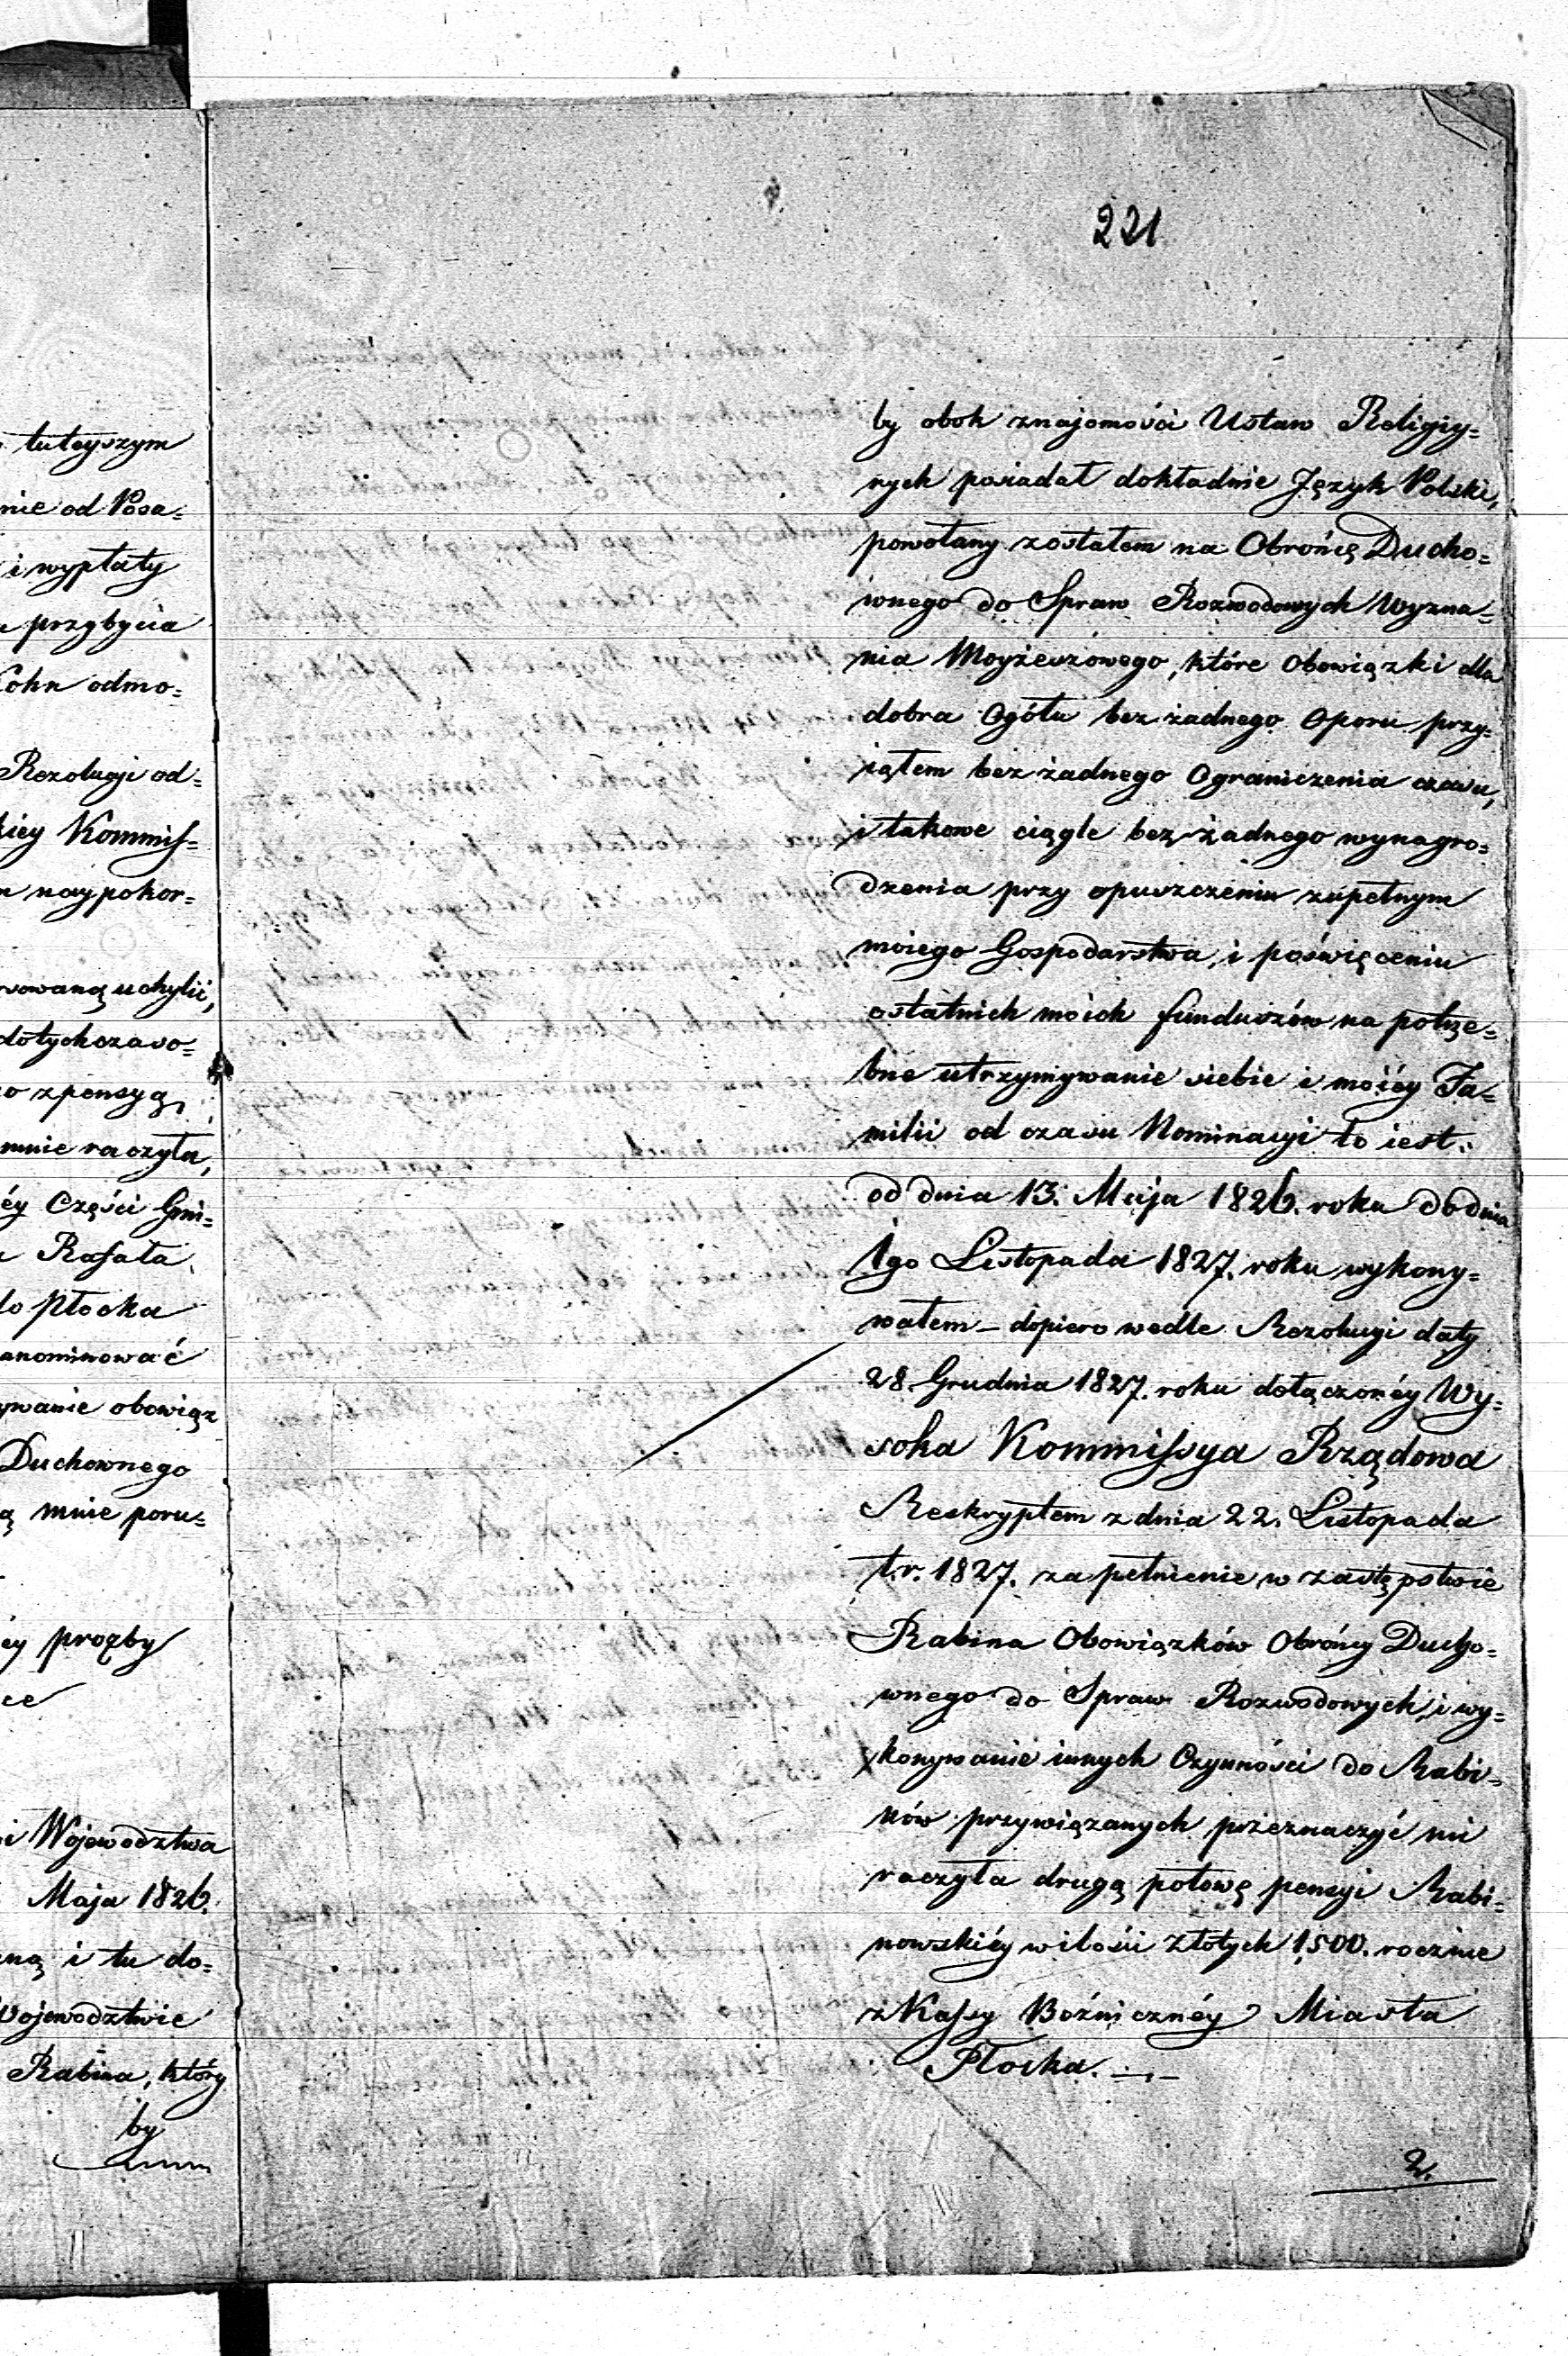 tuteyszym
nie od Posa=
i wypłaty
przybycia
Cohn odmo=
Rezolucyi od=
kiey Kommis=
naypokor=
sowaną uchylić,
dotychczaso=
o z pensyą,
mnie raczyła,
éy Części Gmi=
Rafała
do Płocka
anominować
ywanie obowiąz
Duchownego
ą mnie poru=
ey proźby
ce
i Województwa
Maja 1826.
ną i tu do=
Województwie
Rabina, który
by
221
by obok znajomości Ustaw Religiy=
nych posiadał dokładnie Język Polski,
powołany zostałem na Obrońcę Ducho=
wnego do Spraw Rozwodowych Wyzna=
nia Moyżeszowego, które Obowiązki dla
dobra Ogółu bez żadnego Oporu przy=
iąłem bez żadnego Ograniczenia czasu,
i takowe ciągle bez żadnego wynagro=
dzenia przy opuszczeniu zupełnym
moiego Gospodarstwa, i poświęceniu
ostatnich moich funduszów na potrze=
bne utrzymywanie siebie i moiéy Fa=
milii od czasu Nominacyi to iest:
od dnia 13. Maja 1826. roku do dnia
1go Listopada 1827. roku wykony=
wałem – dopiero wedle Rezolucyi daty
28. Grudnia 1827. roku dołączonéy Wy=
soka Kommissya Rządowa
Reskryptem z dnia 22. Listopada
t.r. 1827. za pełnienie w zastępstwie
Rabina Obowiązków Obrońcy Ducho=
wnego do Spraw Rozwodowych, i wy=
konywanie innych Czynności do Rabi=
nów przywiązanych przeznaczyć mi
raczyła drugą połowę pensyi Rabi=
nowskiéy w ilości złotych 1,500. rocznie
z Kassy Bożnicznéy Miasta
Płocka. –.–
2.